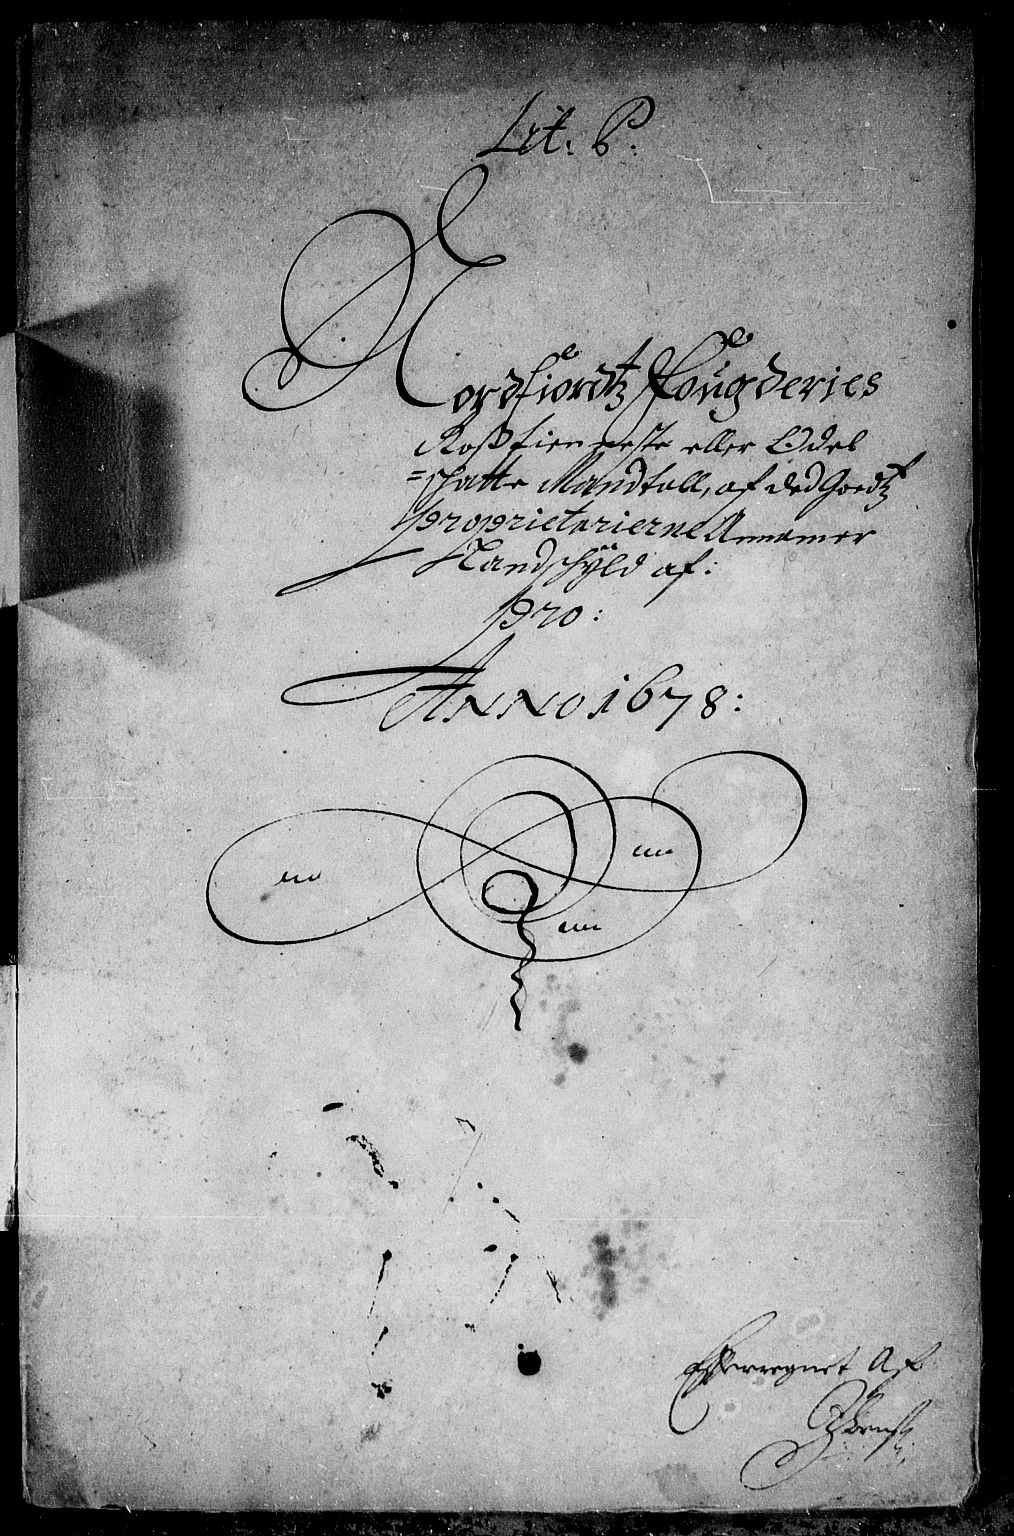 Lit. P:
Nordfiordtz Fougderies
Roßtienneste eller Odel
=schatte Mandtall, af ded Goedtz
proprietarierne Annamer
Landschÿld af:
pro:
ANNO 1678:
Efferregnet Af